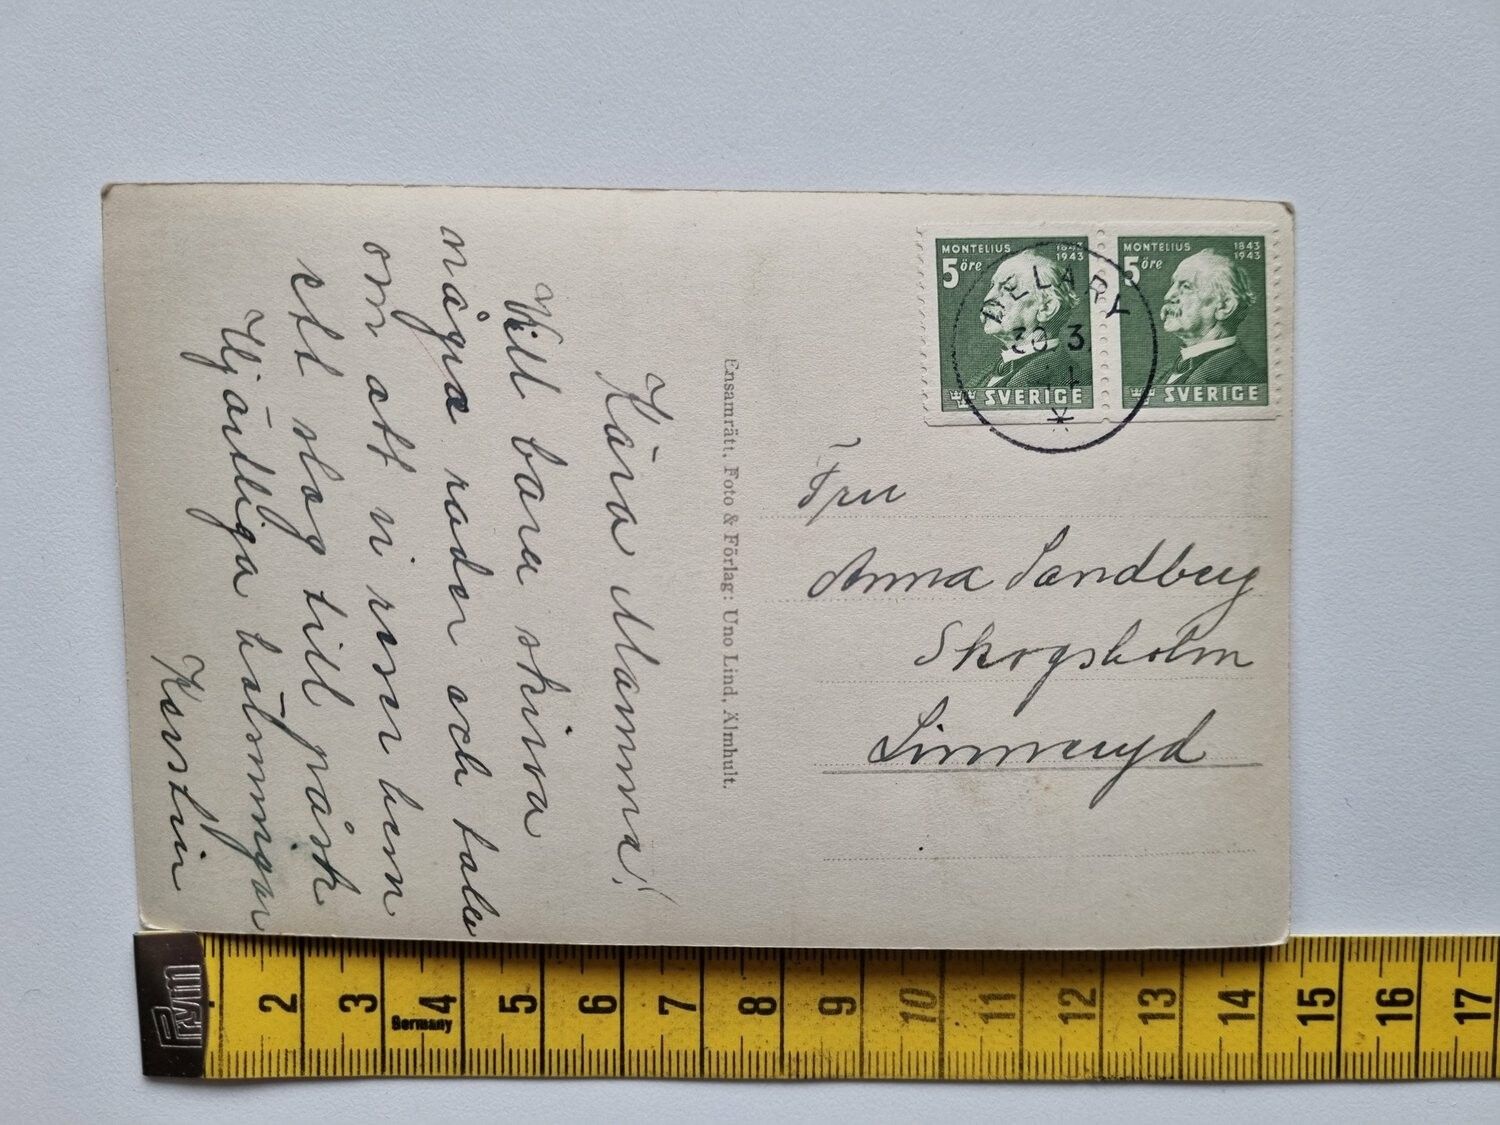 Kära Mamma!
Vill bara skriva
några rader och tala
om att vi reser hem
ett slag till påsk
Hjärtliga hälsningar
Kerstin
Ensamrätt, Foto & Förlag: Uno Lind, Älmhult.
MONTELIUS 1843 1943
5 öre
SVERIGE
MONTELIUS 1843 1943
5 öre
SVERIGE
DELARY
30.3.
Fru
Anna Sandberg
Skogsholm
Linneryd
Prym
2 3 4 5 6 7 8 9 10 11 12 13 14 15 16 17
Germany